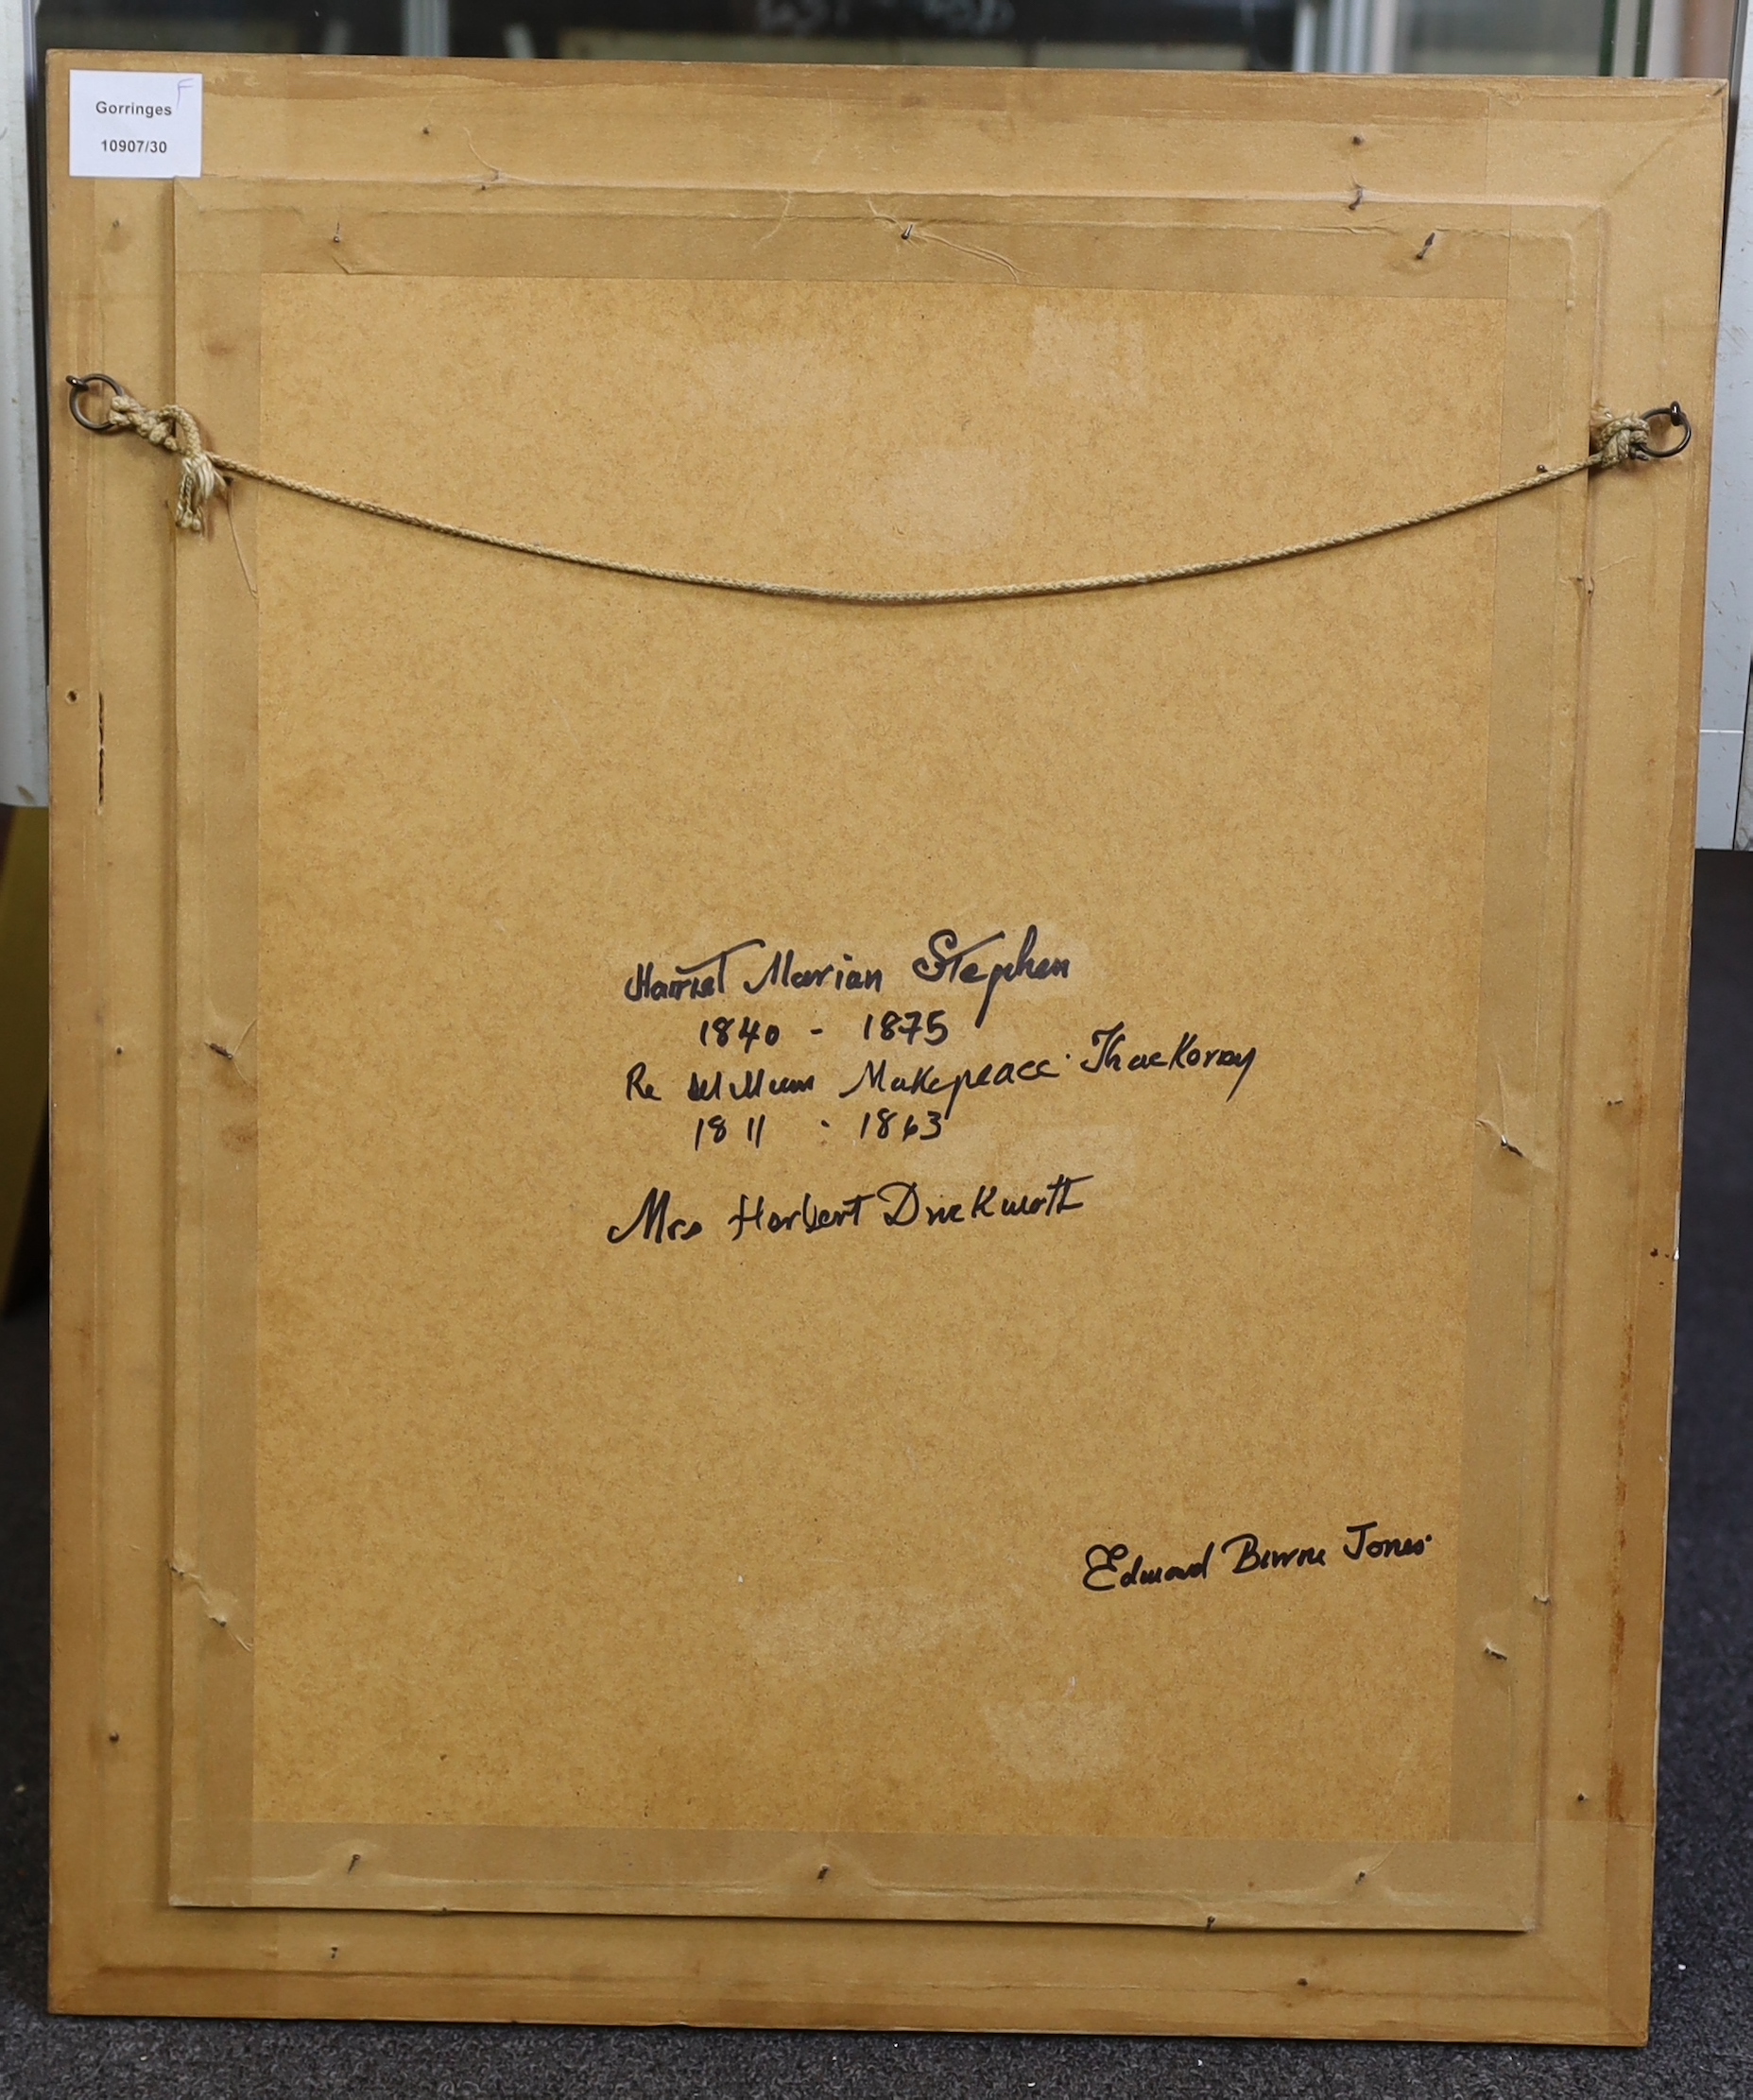 Gorringes F
10907/30
Harriet Marian Stephen
1840 - 1875
Re William Makepeace Thackoray
1811 - 1863
Mrs Herbert Duckworth
Edward Burne Jones